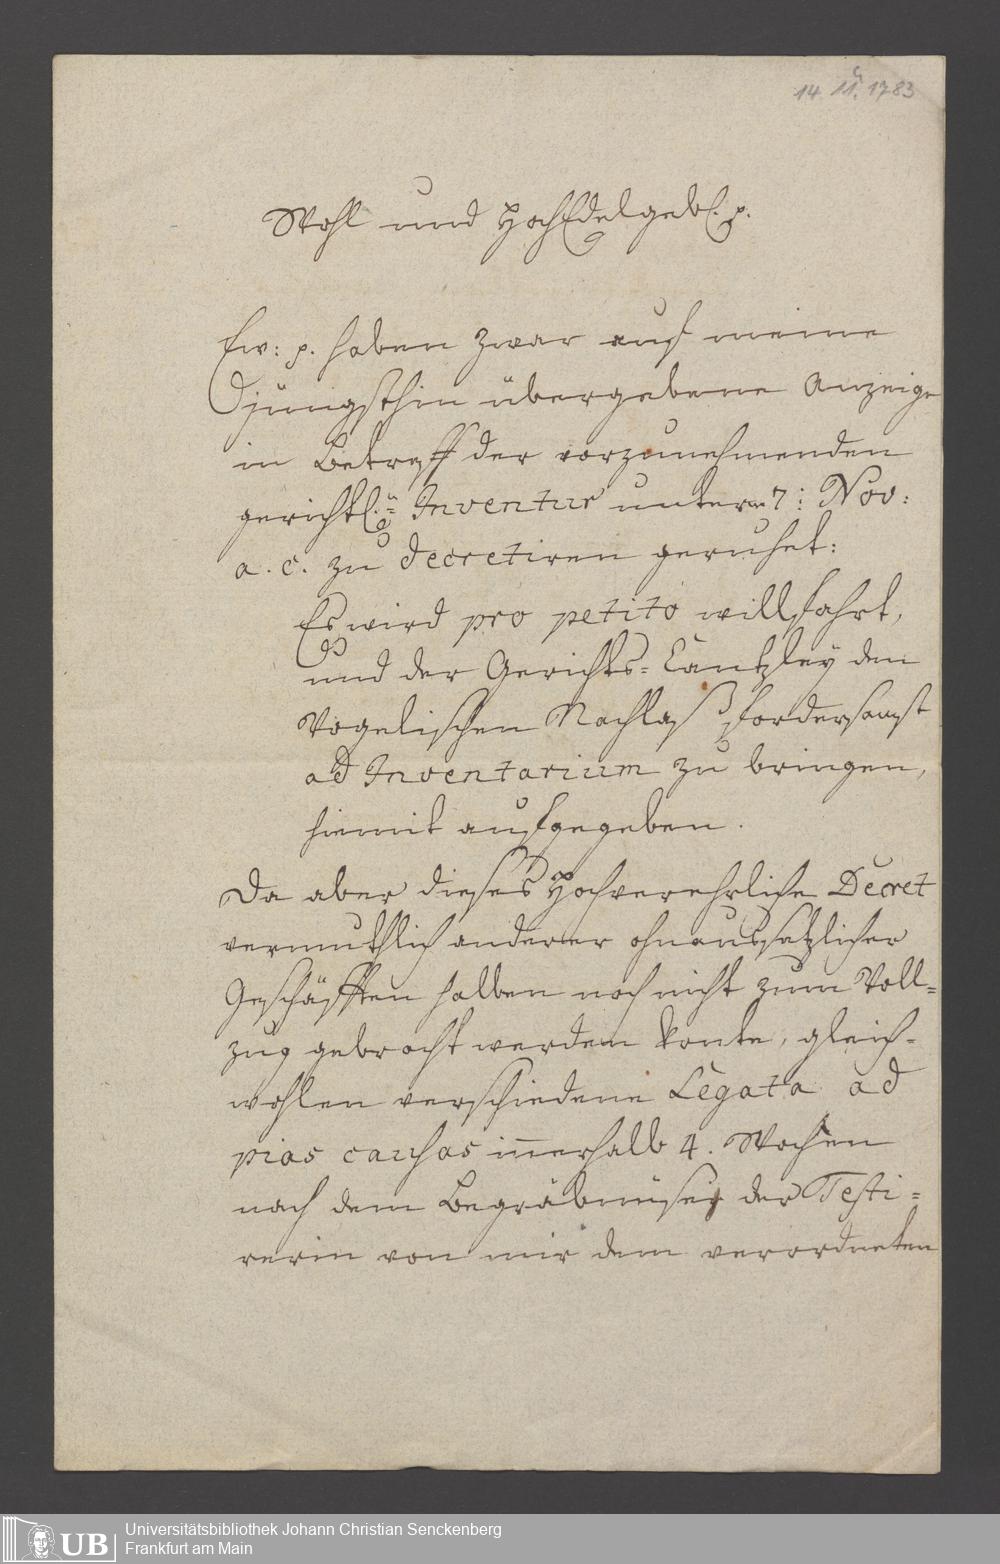 14. 11. 1783
Wohl und HochEdelgebl. p.
Ew: p. haben zwar auf meine
jüngsthin übergebene Anzeige
in Betreff der vorzunehmenden
gerichtl:n Inventur unterm 7: Nov:
a. c. zu decretiren geruhet:
Es wird pro petito willfahrt,
und der Gerichts=Cantzley den
Vogelischen Nachlaß fordersamst
ad Inventarium zu bringen,
hiemit aufgegeben.
Da aber dieses Hochverehrliche Decret
vermuthlich anderer ohnaussetzlicher
Geschäfften halben noch nicht zum Voll=
zug gebracht werden konte, gleich=
wohlen verschiedene Legata ad
pias causas innerhalb 4. Wochen
nach dem Begräbnüs der Testi=
rerin von mir dem verordneten
UB
Universitätsbibliothek Johann Christian Senckenberg
Frankfurt am Main